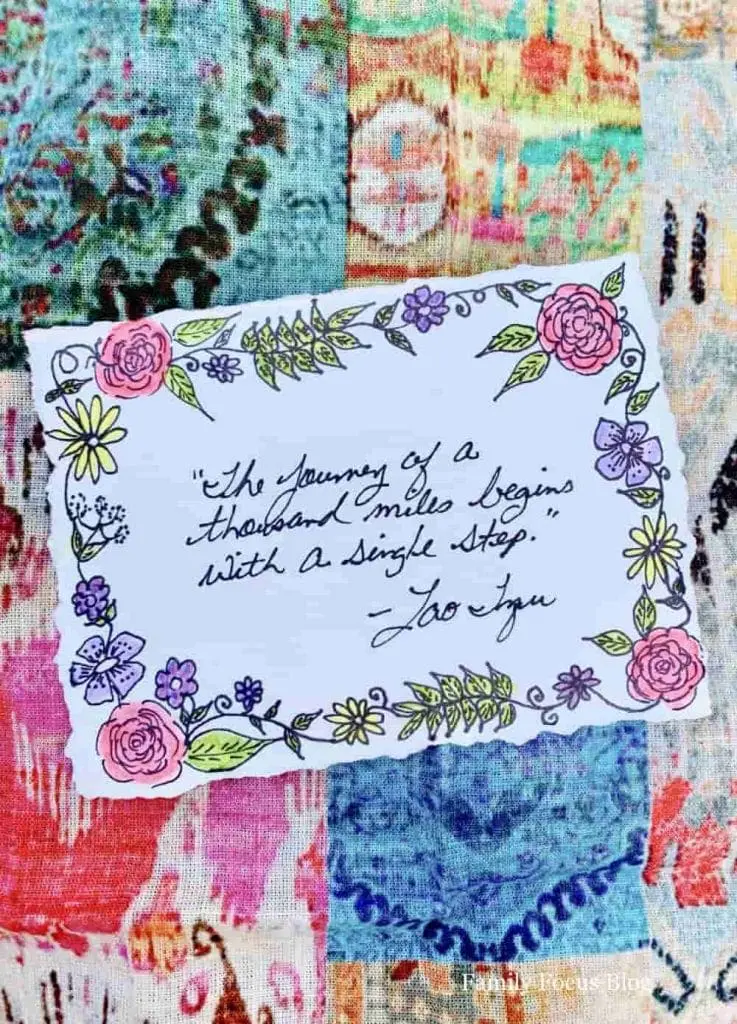 "The journey of a
thousand miles begins
with a single step."
- Lao Tzu
Family Focus Blog